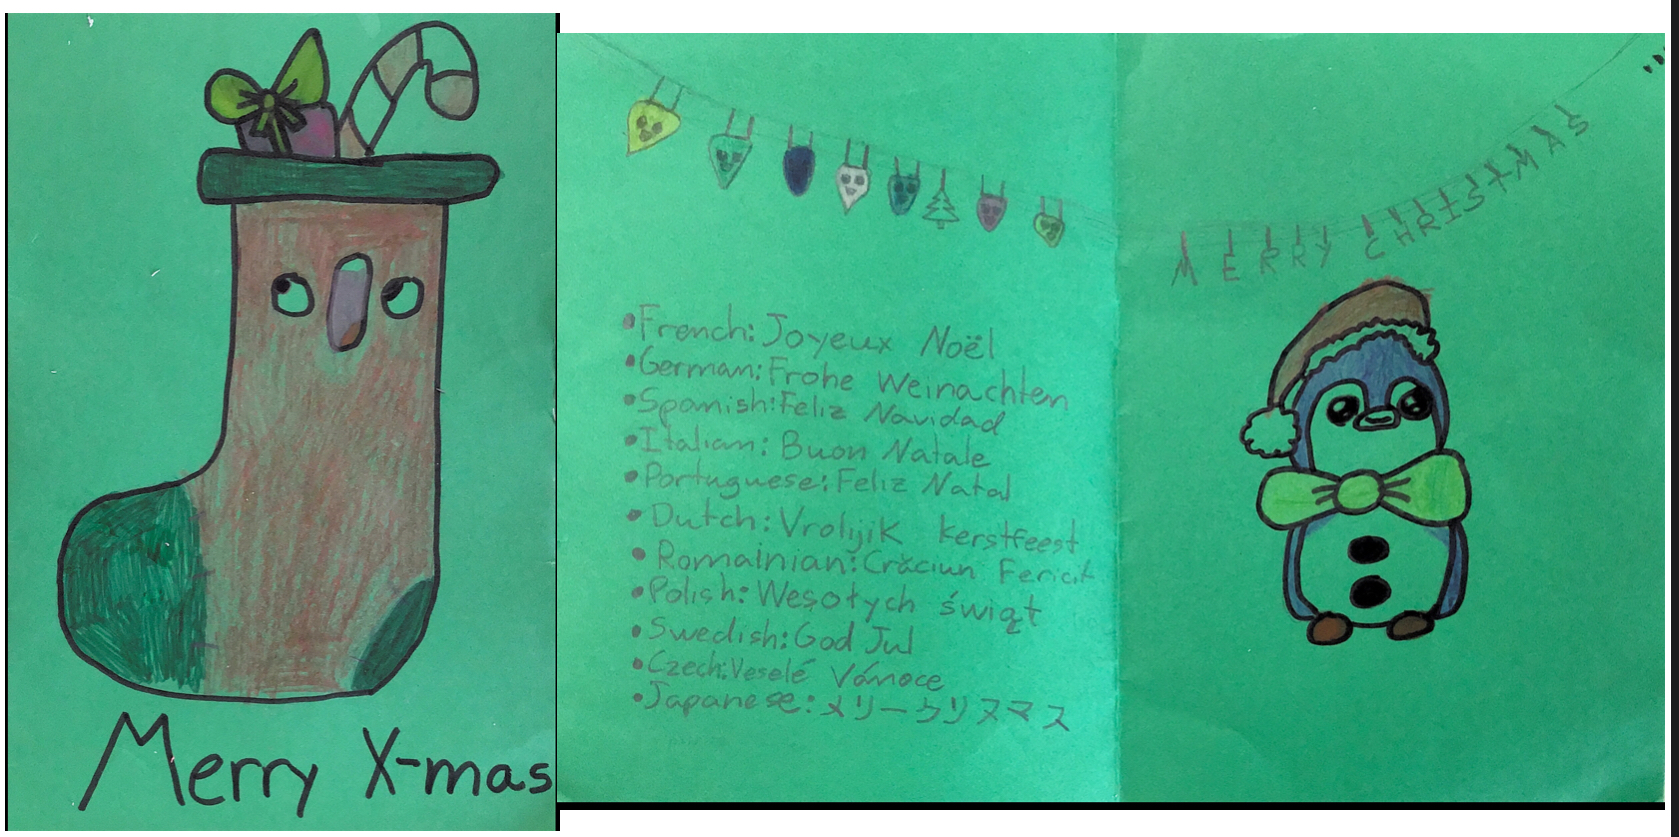 Merry X-mas
MERRY CHRISTMAS
•French: Joyeux Noël
•German: Frohe Weinachten
•Spanish: Feliz Navidad
•Italian: Buon Natale
•Portuguese: Feliz Natal
•Dutch: Vrolijik kerstfeest
•Romainian: Crăciun Fericit
•Polish: Wesołych świąt
•Swedish: God Jul
•Czech: Veselé Vánoce
•Japanese: メリークリスマス